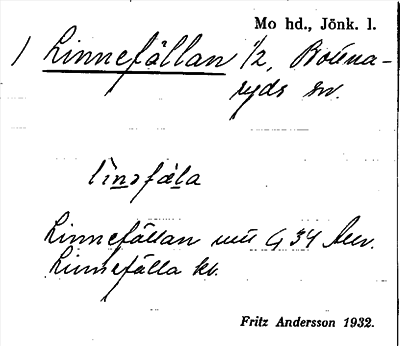 Mo hd., Jönk. l.
1 Linnefällan 1/2, Bottna-
ryds sn.
Linnefällan G 34 Auv.
Linnefälla kt.
Fritz Andersson 1932.